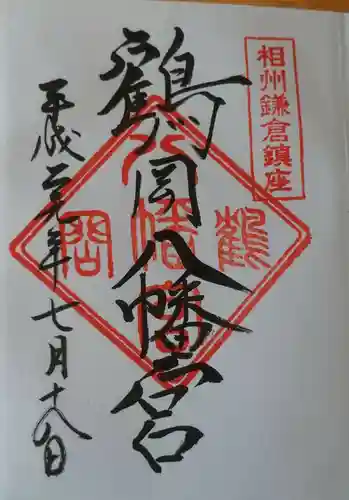 相州鎌倉鎮座
鶴岡八幡宮
鶴
八幡宮
岡
平成二九年七月十八日